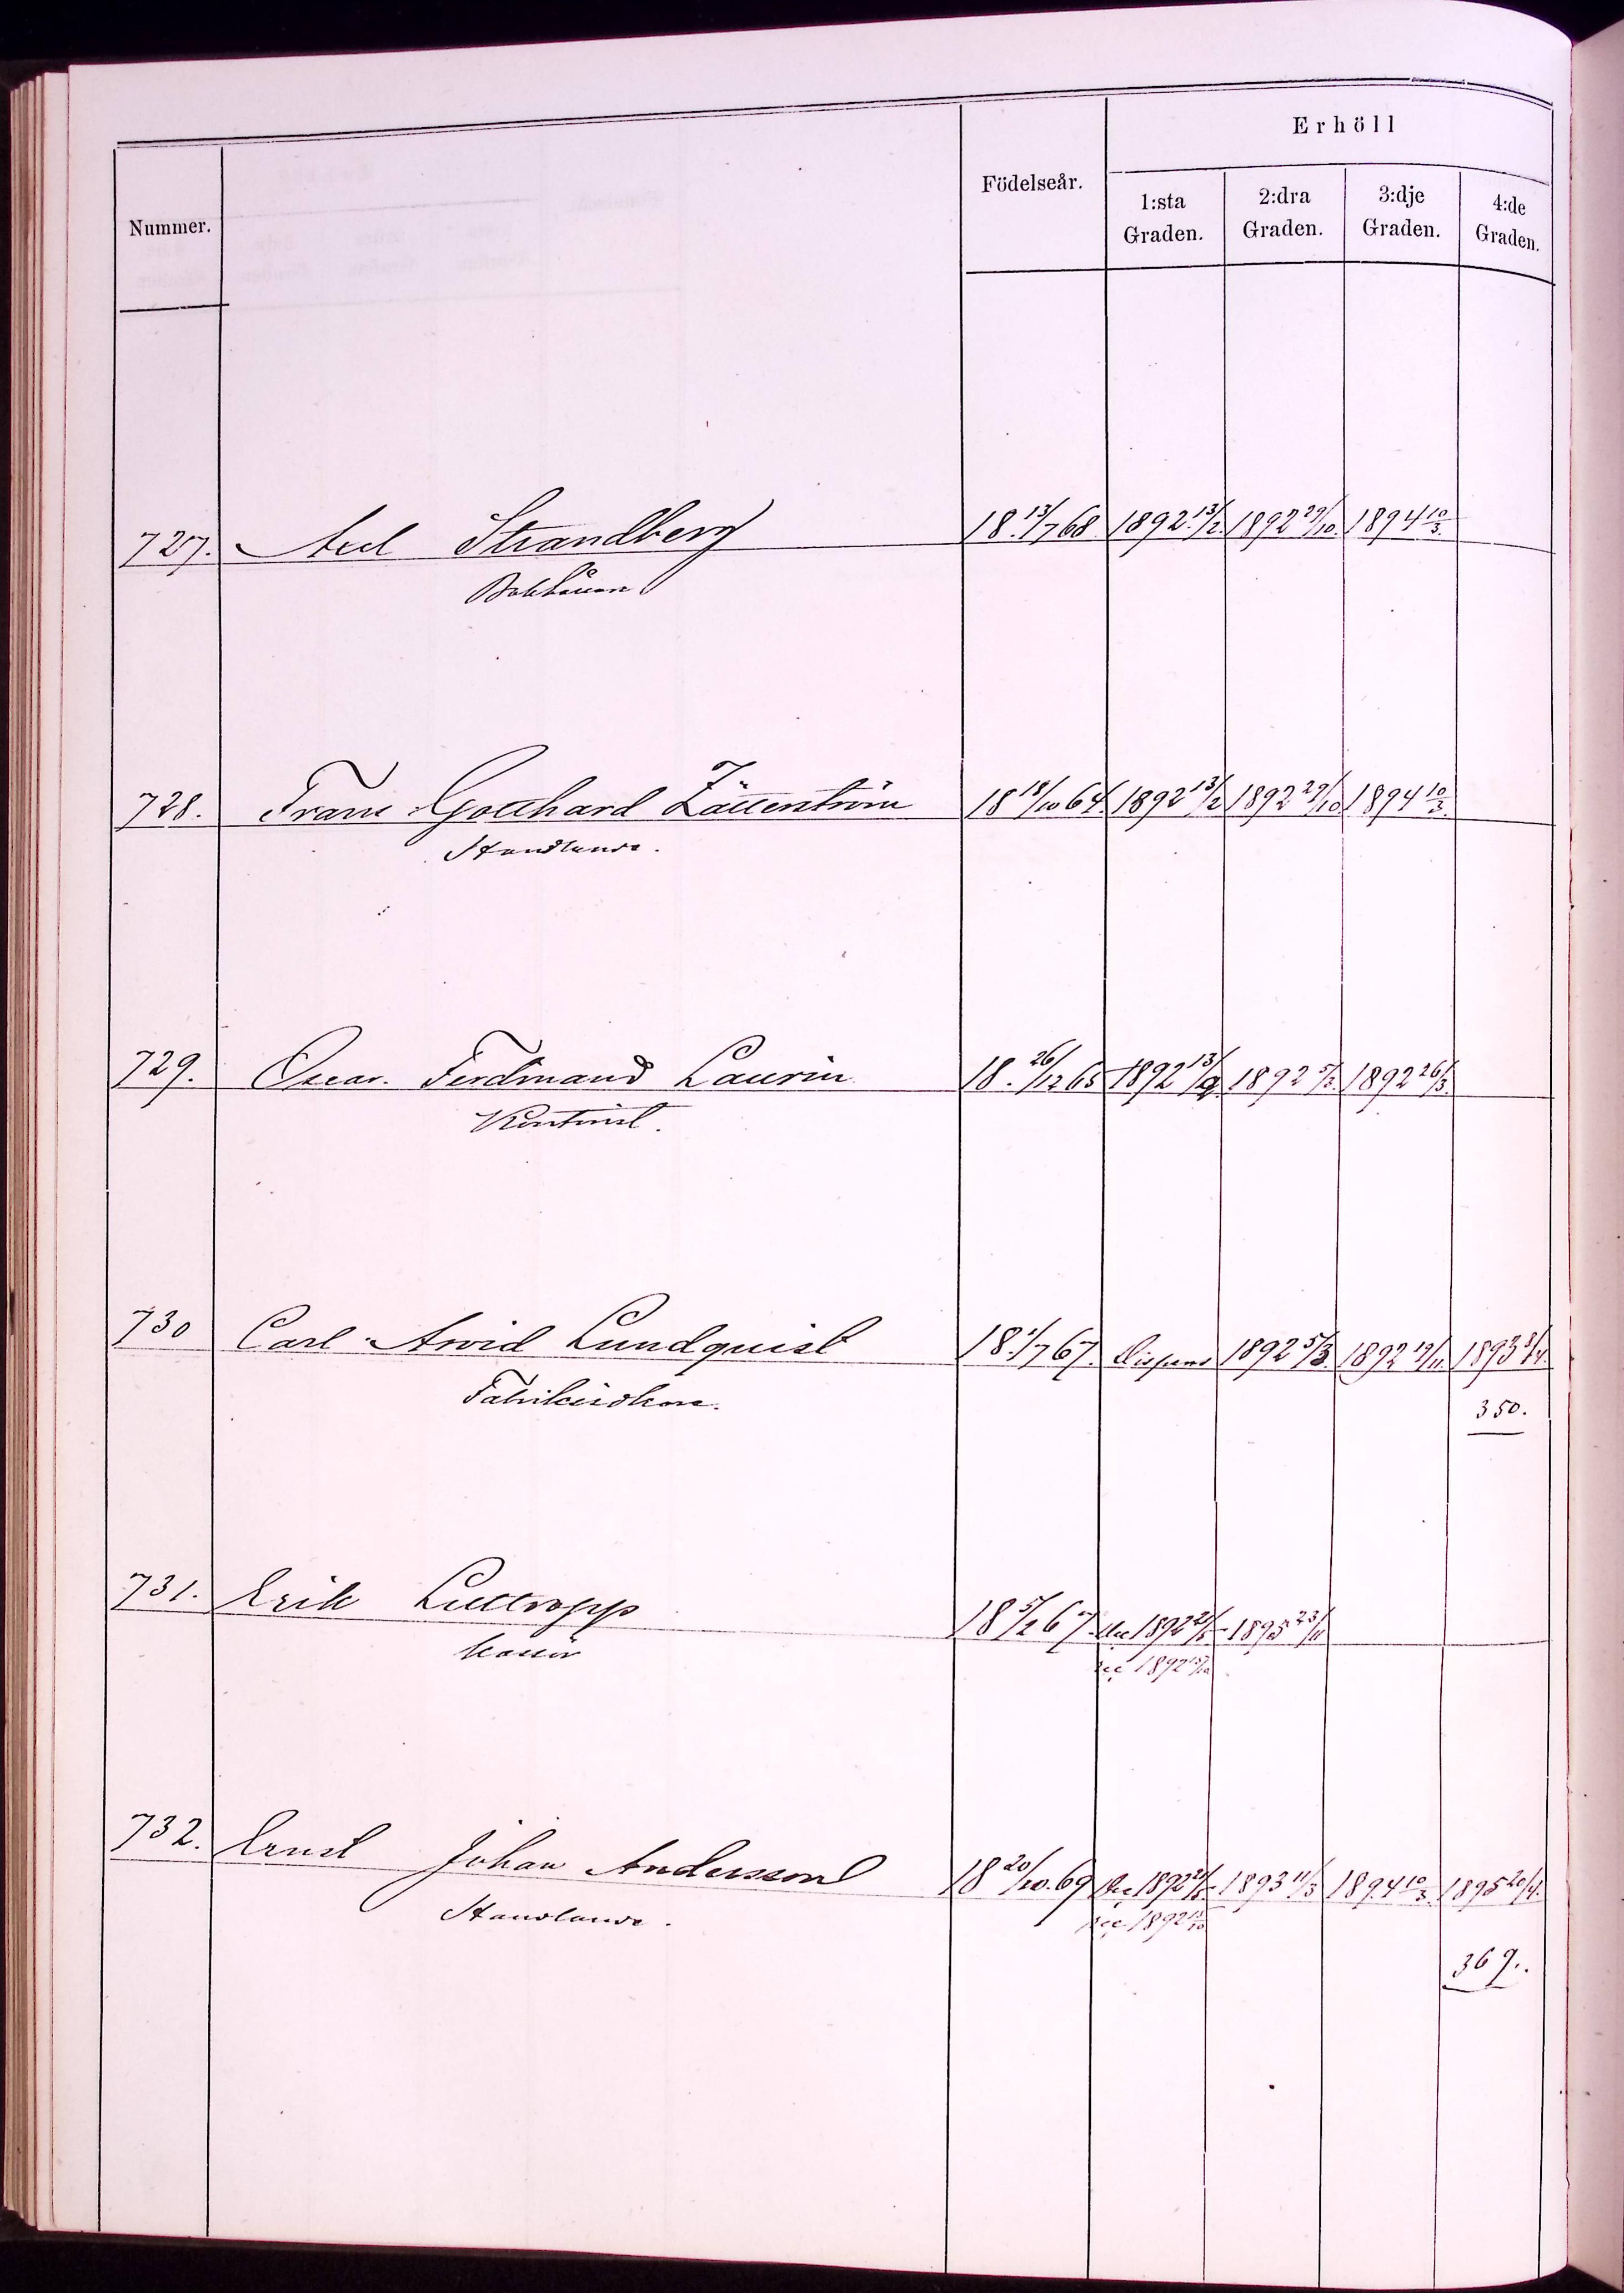 Erhöll
Nummer. Födelseår. 1:sta Graden. 2:dra Graden. 3:dje Graden. 4:de Graden.
727. Axel Strandberg 18 13/7 68 1892 13/2 1892 29/10 1894 10/3
Bokhållare
728. Frans Gotthard Zätterström 18 18/10 64 1892 13/2 1892 29/10 1894 10/3
Handlande.
729. Oscar Ferdinand Laurin 18 26/12 65 1892 13/2 1892 5/3 1892 26/3
Kontorist.
730 Carl Arvid Lundquist 18 1/7 67. Dispens 1892 5/3 1892 19/11 1893 8/4
Fabriksidkare.
350.
731. Erik Luttropp 18 5/2 67. 1892 21/5 1895 23/11
Kassör
rec 1892 15/10
732. Ernst Johan Andersson 18 20/10 69 1892 21/5 1893 11/3 1894 10/3 1895 20/4
Handlande.
rec 1892 15/10
369.